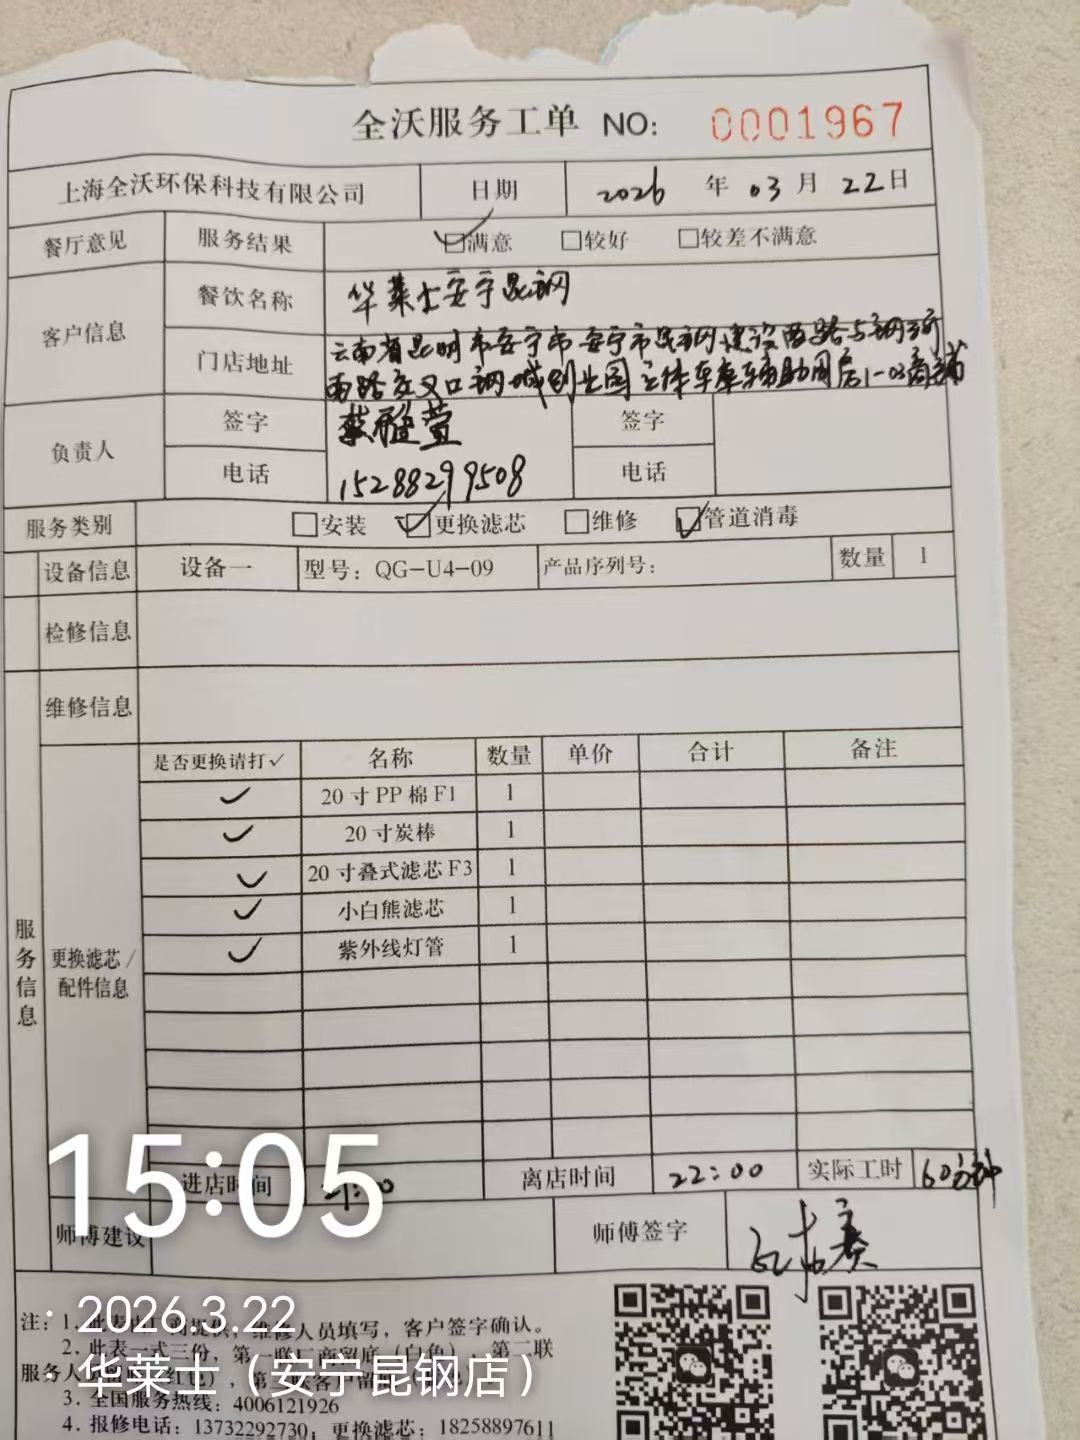 全沃服务工单 NO: 0001967
上海全沃环保科技有限公司 日期 2026 年 03 月 22 日
餐厅意见 服务结果 ☑满意 □较好 □较差不满意
客户信息 餐饮名称 华莱士安宁昆钢
门店地址 云南省昆明市安宁市安宁市昆钢建设西路与钢河
南路交叉口钢城创业园立体车库辅助用房1-03商铺
负责人 签字 蔡雅萱 签字
电话 15288299508 电话
服务类别 □安装 ☑更换滤芯 □维修 ☑管道消毒
设备信息 设备一 型号：QG-U4-09 产品序列号： 数量 1
检修信息
维修信息
是否更换请打✓ 名称 数量 单价 合计 备注
✓ 20寸PP棉F1 1
✓ 20寸炭棒 1
✓ 20寸叠式滤芯F3 1
✓ 小白熊滤芯 1
✓ 紫外线灯管 1
服务信息
更换滤芯/
配件信息
15:05
进店时间 21:00 离店时间 22:00 实际工时 60分钟
师傅建议 师傅签字
注：1.
维修人员填写，客户签字确认。
2.此表一式三份，第一联厂商留底（白色），第二联
服务人
3.全国服务热线：4006121926
4.报修电话：13732292730；更换滤芯：18258897611
2026.3.22
华莱士（安宁昆钢店）